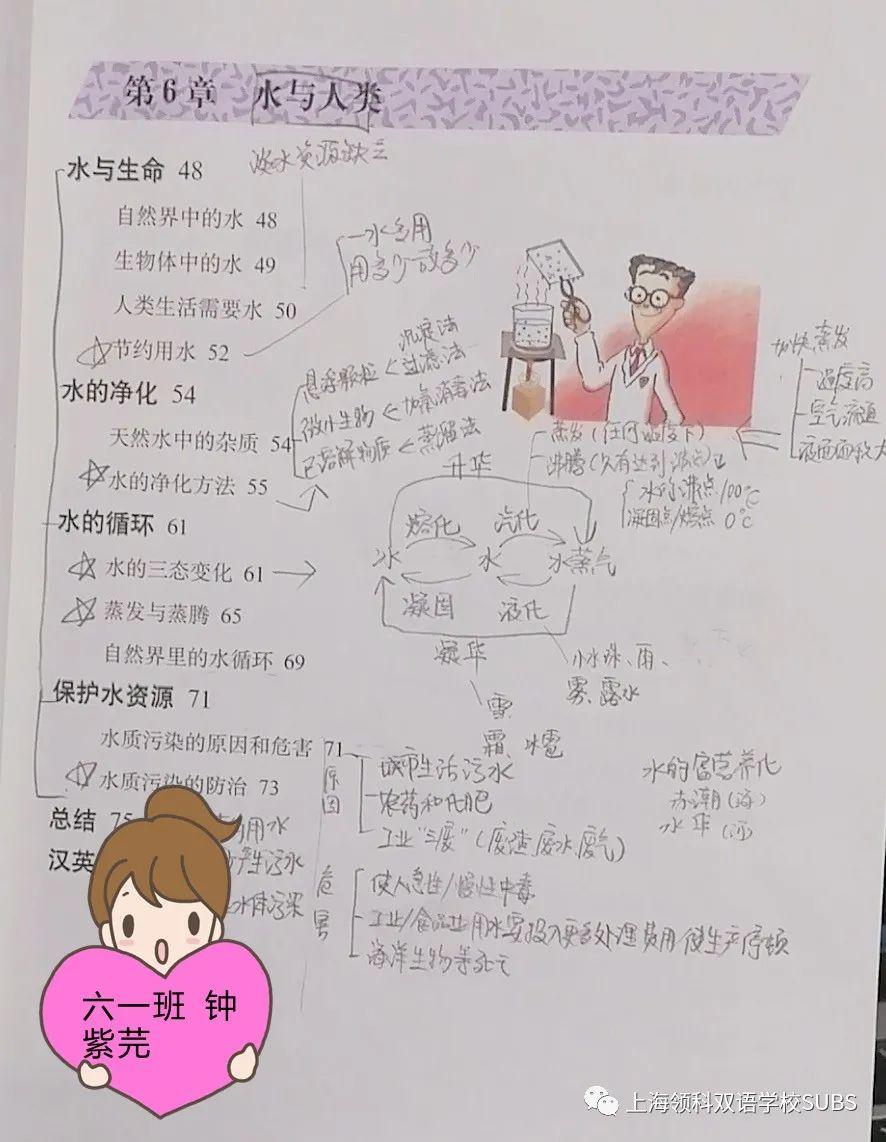 第6章 水与人类
水与生命 48
淡水资源缺乏
自然界中的水 48
生物体中的水 49
人类生活需要水 50
节约用水 52
一水多用
用多少放多少
水的净化 54
天然水中的杂质 54
水的净化方法 55
悬浮颗粒 < 沉淀法
过滤法
微小生物 < 加氯消毒法
已溶解物质 < 蒸馏法
加快蒸发
温度高
空气流通
液面面积大
蒸发(任何温度下)
沸腾(只有达到沸点)
水的沸点100℃
凝固点/熔点 0℃
水的循环 61
水的三态变化 61
蒸发与蒸腾 65
自然界里的水循环 69
升华
熔化 汽化
冰 水 水蒸气
凝固 液化
凝华
小水珠、雨、
雾、露水
雪
霜 冰雹
保护水资源 71
水质污染的原因和危害 71
水质污染的防治 73
原因
城市生活污水
农药和化肥
工业"三废"(废渣、废水、废气)
水的富营养化
赤潮(海)
水华(河)
总结 75
用水
产生污水
水体污染
汉英
危害
使人急性/慢性中毒
工业/食品业用水要投入更多处理费用使生产停顿
海洋生物等死亡
六一班 钟
紫芫
上海领科双语学校SUBS